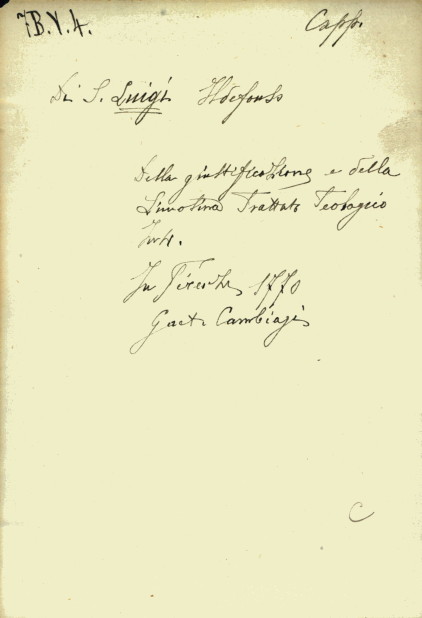 7B.V.4.
Capp.
Di S. Luigi Ildefonso
Della giustificazione e della
Dinotina Trattato Teologico
In Firenze 1770
Gaet. Cambiagi
C